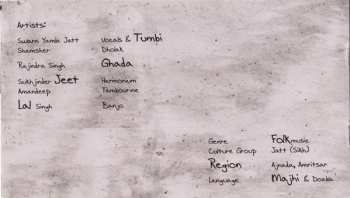 Artists:
Swarn Yamla Jatt Vocals & Tumbi
Shamsher Dholak
Rajindra Singh Ghada
Sukhjinder Jeet Harmonium
Amandeep Tambourine
Lal Singh Banjo
Genre Folk music
Culture Group Jatt (Sikh)
Region Ajnala, Amritsar
Language Majhi & Doaba